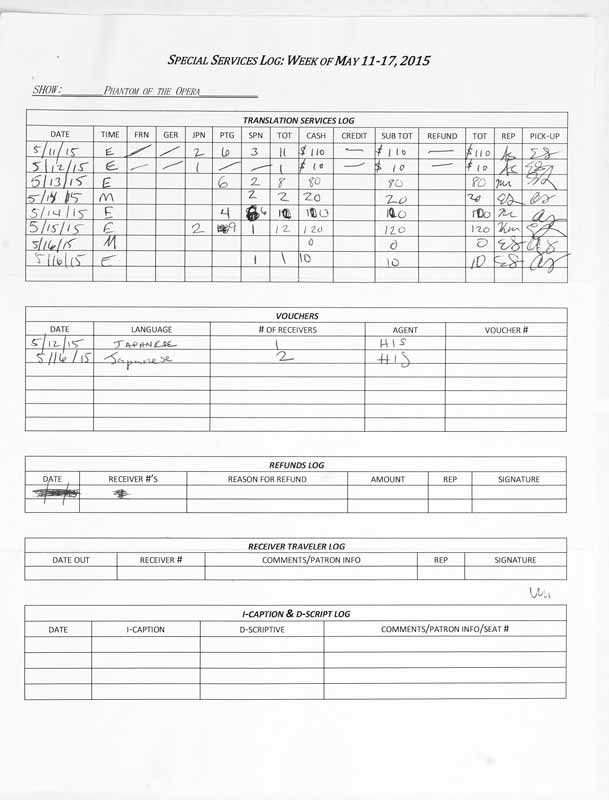 SPECIAL SERVICES LOG: WEEK OF MAY 11-17, 2015
SHOW: PHANTOM OF THE OPERA
TRANSLATION SERVICES LOG
DATE TIME FRN GER JPN PTG SPN TOT CASH CREDIT SUB TOT REFUND TOT REP PICK-UP
5/11/15 E / / 2 6 3 11 $110 — $110 — $110 AS EG
5/12/15 E — — 1 / / 1 $10 — $10 — $10 AS
5/13/15 E 6 2 8 80 80 80
5/14/15 M 2 2 20 20 20 EG
5/14/15 E 4 6 10 100 100 100
5/15/15 E 2 9 1 12 120 120 120 Km
5/16/15 M 0 0 0 EG
5/16/15 E 1 1 10 10 10 EG
VOUCHERS
DATE LANGUAGE # OF RECEIVERS AGENT VOUCHER #
5/12/15 JAPANESE 1 HIS
5/16/15 Japanese 2 HIS
REFUNDS LOG
DATE RECEIVER #'S REASON FOR REFUND AMOUNT REP SIGNATURE
RECEIVER TRAVELER LOG
DATE OUT RECEIVER # COMMENTS/PATRON INFO REP SIGNATURE
I-CAPTION & D-SCRIPT LOG
DATE I-CAPTION D-SCRIPTIVE COMMENTS/PATRON INFO/SEAT #